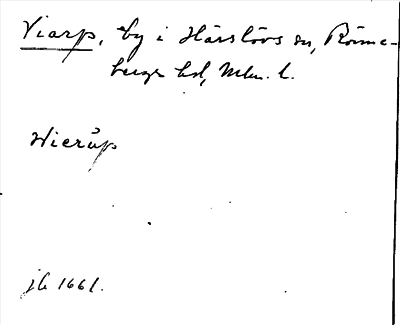 Viarp, by i Härslövs sn, Rönne-
bergs hd, Mlm. l.
Wierup
jb 1661.